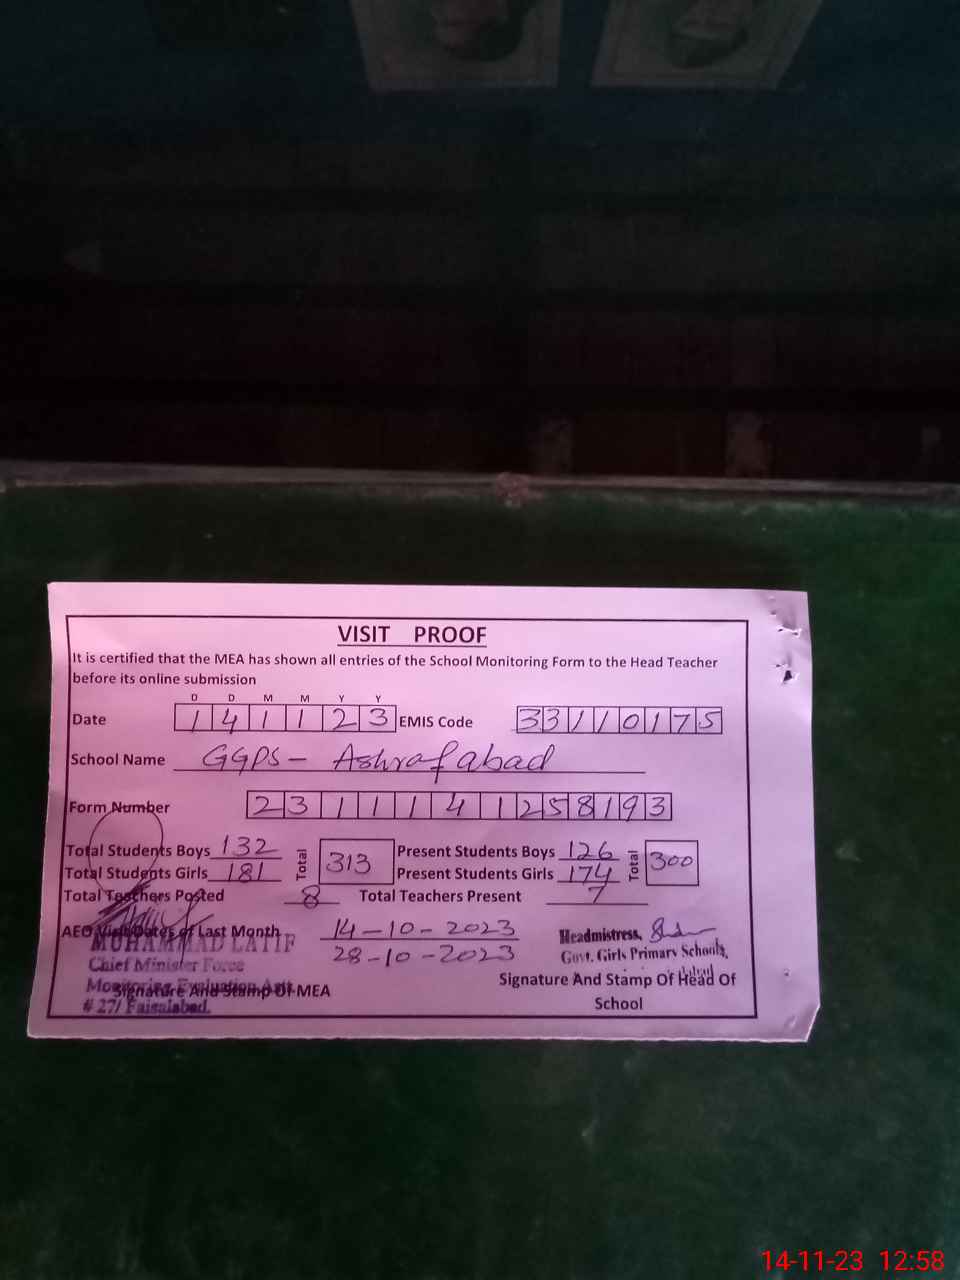 VISIT PROOF
It is certified that the MEA has shown all entries of the School Monitoring Form to the Head Teacher
before its online submission
D D M M Y Y
Date 1 4 1 1 2 3 EMIS Code 3 3 1 1 0 1 7 5
School Name GGPS - Ashrafabad
Form Number 2 3 1 1 1 4 1 2 5 8 1 9 3
Total Students Boys 132 Total 313 Present Students Boys 126 Total 300
Total Students Girls 181 Present Students Girls 174
Total Teachers Posted 8 Total Teachers Present 7
AEO Visit Dates of Last Month 14-10-2023
28-10-2023
MUHAMMAD LATIF
Chief Minister Force
Monitoring Evaluation
# 27/ Faisalabad.
Signature And Stamp Of MEA
Headmistress,
Govt. Girls Primary School,
Signature And Stamp Of Head Of
School
14-11-23 12:58